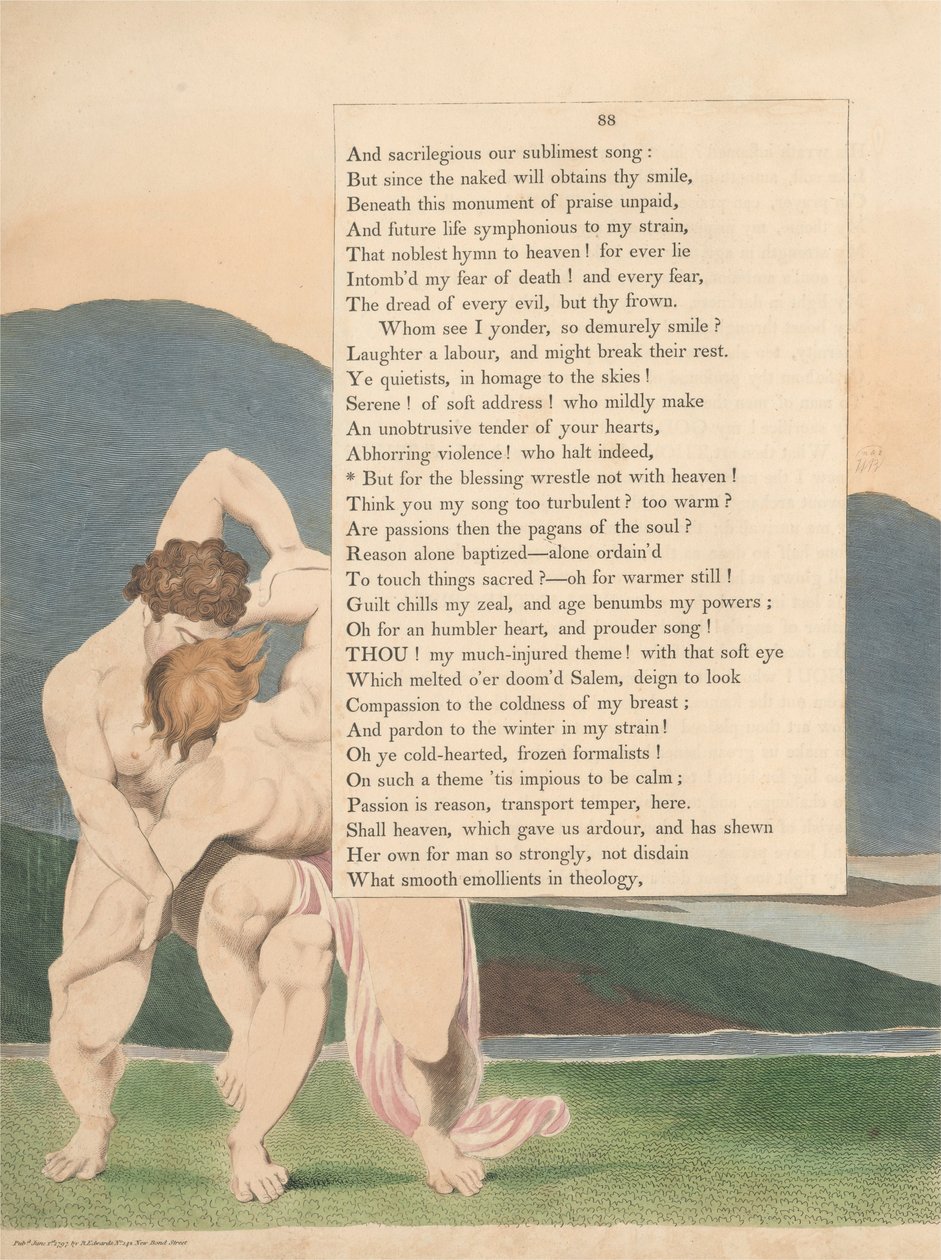 88
And sacrilegious our sublimest song :
But since the naked will obtains thy smile,
Beneath this monument of praise unpaid,
And future life symphonious to my strain,
That noblest hymn to heaven ! for ever lie
Intomb'd my fear of death ! and every fear,
The dread of every evil, but thy frown.
Whom see I yonder, so demurely smile ?
Laughter a labour, and might break their rest.
Ye quietists, in homage to the skies !
Serene ! of soft address ! who mildly make
An unobtrusive tender of your hearts,
Abhorring violence ! who halt indeed,
* But for the blessing wrestle not with heaven !
Think you my song too turbulent ? too warm ?
Are passions then the pagans of the soul ?
Reason alone baptized—alone ordain'd
To touch things sacred ?—oh for warmer still !
Guilt chills my zeal, and age benumbs my powers ;
Oh for an humbler heart, and prouder song !
THOU ! my much-injured theme ! with that soft eye
Which melted o'er doom'd Salem, deign to look
Compassion to the coldness of my breast ;
And pardon to the winter in my strain !
Oh ye cold-hearted, frozen formalists !
On such a theme 'tis impious to be calm ;
Passion is reason, transport temper, here.
Shall heaven, which gave us ardour, and has shewn
Her own for man so strongly, not disdain
What smooth emollients in theology,
Pubd. June 1st. 1797, by R. Edwards No. 142 New Bond Street